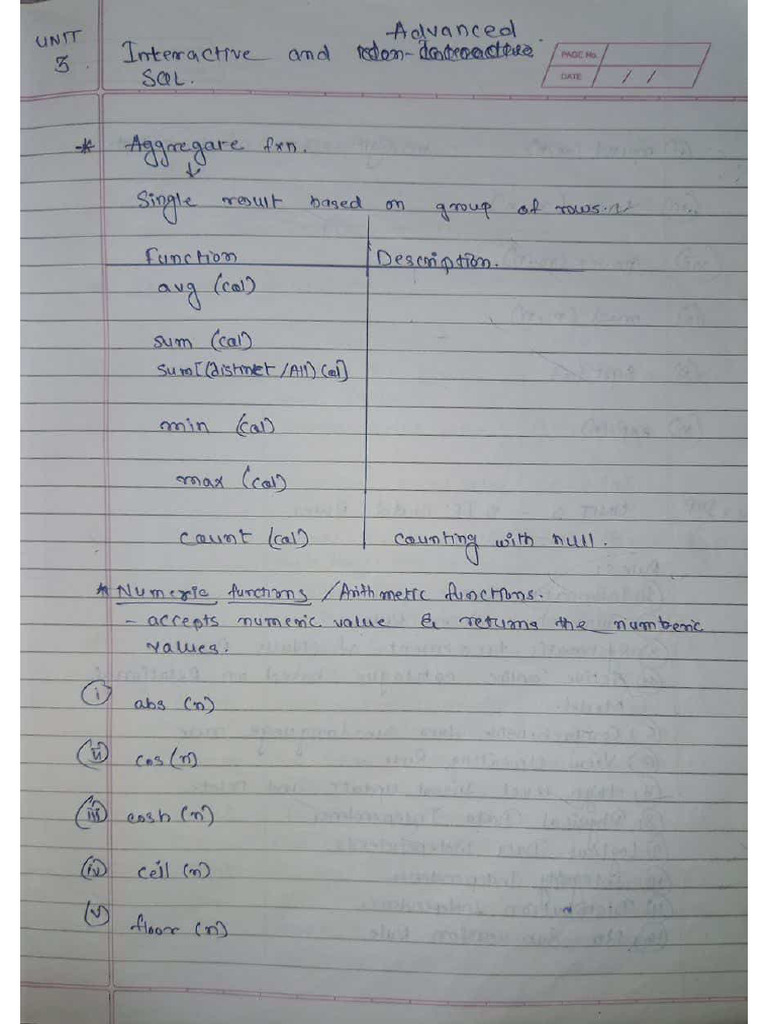 UNIT
3
Advanced
Interactive and Non-Interactive
SQL.
PAGE No.
DATE / /
* Aggregate fxn.
↓
Single result based on group of rows.
Function Description.
avg (col)
sum (col)
sum[(distinct/All) col]
min (col)
max (col)
count (col) counting with null.
* Numeric functions /Arithmetic functions.
- accepts numeric value & returns the numberic
values.
i abs (n)
ii cos (n)
iii cosh (n)
iv ceil (n)
v floor (n)